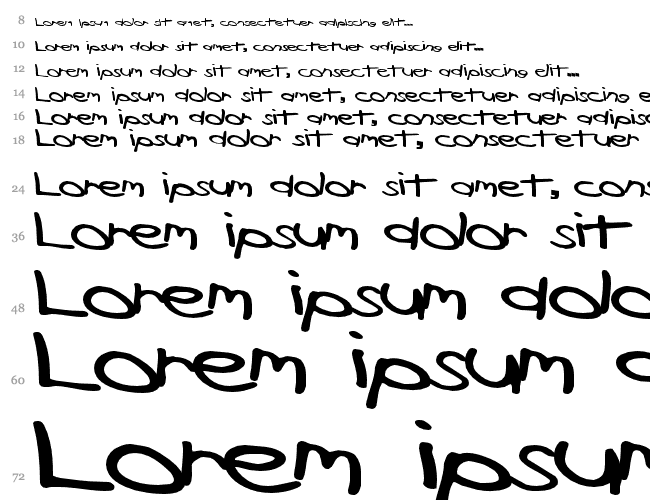 8 Lorem ipsum dolor sit amet, consectetuer adipiscing elit...
10 Lorem ipsum dolor sit amet, consectetuer adipiscing elit...
12 Lorem ipsum dolor sit amet, consectetuer adipiscing elit...
14 Lorem ipsum dolor sit amet, consectetuer adipiscing e
16 Lorem ipsum dolor sit amet, consectetuer adipisc
18 Lorem ipsum dolor sit amet, consectetuer
24 Lorem ipsum dolor sit amet, cons
36 Lorem ipsum dolor sit
48 Lorem ipsum dolo
60 Lorem ipsum d
72 Lorem ipsum